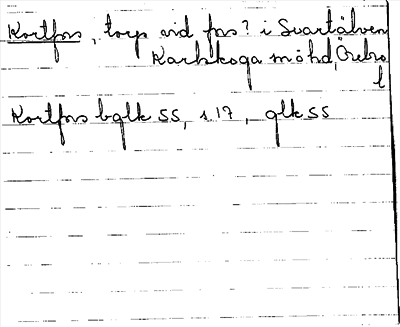 Kortfors, torp vid fors? i Svartälven
Karlskoga möhd, Örebro
l
Kortfors bglk SS, s. 17, glk SS